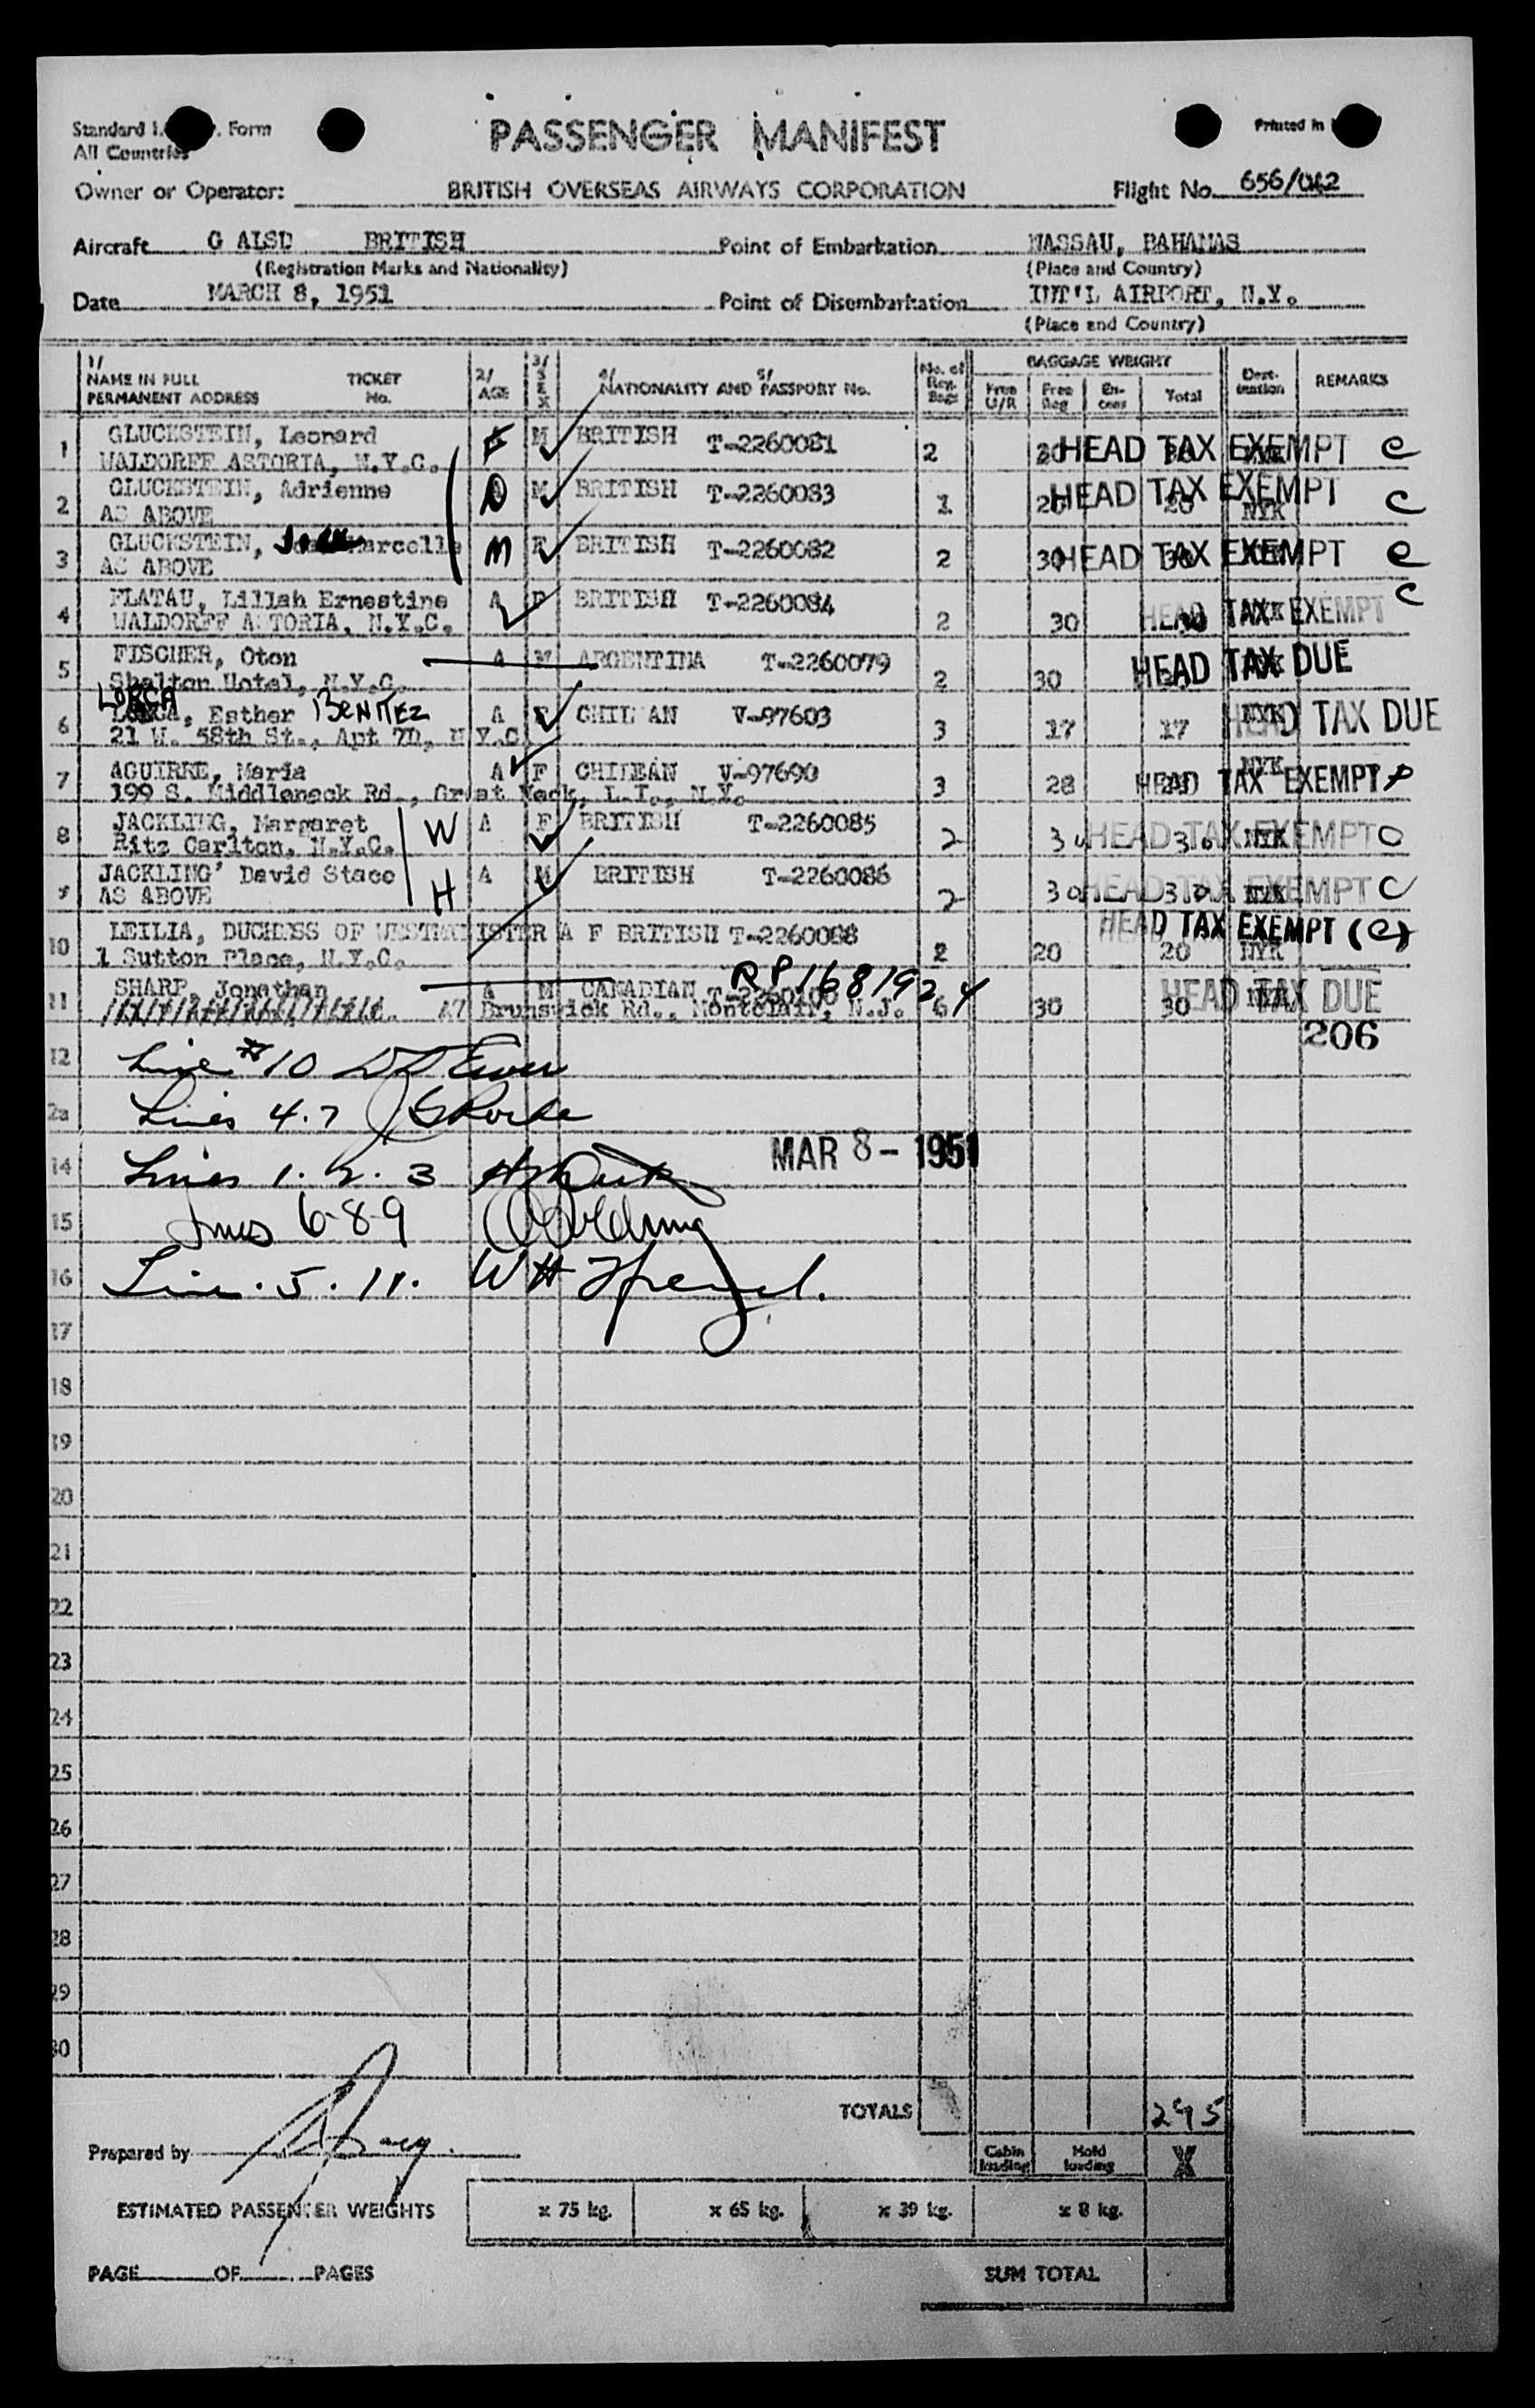 Standard I. . Form
All Countries
PASSENGER MANIFEST
Printed in
Owner or Operator: BRITISH OVERSEAS AIRWAYS CORPORATION Flight No. 656/
Aircraft G ALSD BRITISH Point of Embarkation NASSAU, BAHAMAS
(Registration Marks and Nationality) (Place and Country)
Date MARCH 8, 1951 Point of Disembarkation INT'L AIRPORT, N.Y.
(Place and Country)
1/ NAME IN FULL PERMANENT ADDRESS TICKET No. 2/ AGE 3/ SEX 4/ NATIONALITY AND 5/ PASSPORT No. No. of Reg. Bags BAGGAGE WEIGHT Free U/R Free Reg Ex-cess Total Dest-ination REMARKS
1 GLUCKSTEIN, Leonard F M BRITISH T-2260081 2 HEAD TAX EXEMPT C
WALDORFF ASTORIA, N.Y.C.
2 GLUCKSTEIN, Adrienne D M BRITISH T-2260083 1 20 HEAD TAX EXEMPT 20 NYK C
AS ABOVE
3 GLUCKSTEIN, Marcelle M F BRITISH T-2260082 2 30 HEAD TAX EXEMPT 30 C
AS ABOVE
4 FLATAU, Lillah Ernestine A F BRITISH T-2260084 2 30 HEAD TAX EXEMPT C
WALDORFF ASTORIA, N.Y.C.
5 FISCHER, Oton A M ARGENTINA T-2260079 2 30 HEAD TAX DUE
Shelton Hotel, N.Y.C.
LORCA
6 Esther BENITEZ A F CHILEAN V-97603 3 17 17 NYK HEAD TAX DUE
21 W. 58th St., Apt 7D, N.Y.C.
7 AGUIRRE, Maria A F CHILEAN V-97690 3 28 NYK HEAD TAX EXEMPT P
199 S. Middleneck Rd., Great Neck, L.I., N.Y.
8 JACKLING, Margaret W A F BRITISH T-2260085 2 30 HEAD TAX EXEMPT 30 NYK C
Ritz Carlton, N.Y.C.
9 JACKLING' David Stace H A M BRITISH T-2260086 2 30 HEAD TAX EXEMPT 30 NYK C
AS ABOVE
10 LEILIA, DUCHESS OF WESTMINISTER A F BRITISH T-2260088 2 20 20 NYK HEAD TAX EXEMPT (C)
1 Sutton Place, N.Y.C.
11 SHARP, Jonathan A M CANADIAN RP1681924 6 30 30 HEAD TAX DUE
47 Brunswick Rd., Montclair, N.J.
206
12 Line #10
2a Lines 4.7
MAR 8 - 1951
14 Lines 1. 2. 3
15 Lines 6-8-9
16 Line. 5. 11.
17
18
19
20
21
22
23
24
25
26
27
28
29
30
TOTALS 295
Prepared by
Cabin loading Hold loading X
ESTIMATED PASSENGER WEIGHTS x 75 kg. x 65 kg. x 39 kg. x 8 kg.
PAGE OF PAGES SUM TOTAL